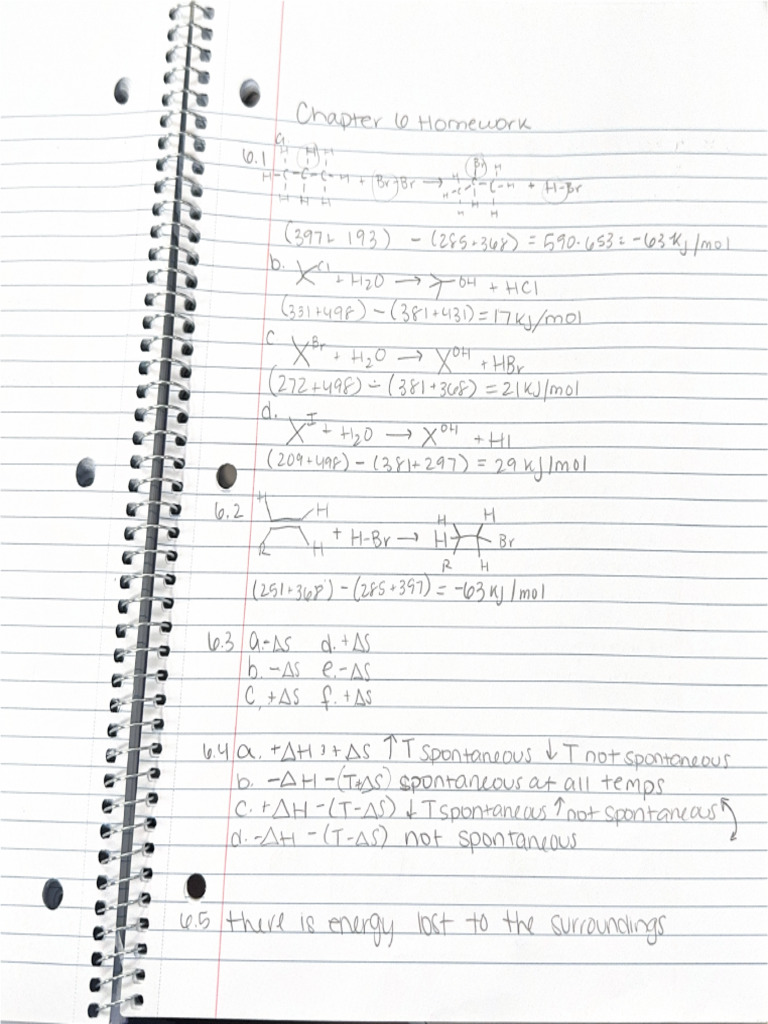 Chapter 6 Homework
6.1 a.
H H H
H-C-C-C-H + Br-Br → H-C-C-C-H + H-Br
(397+ 193) - (285+368) = 590-653= -63 KJ/mol
b. Cl + H2O → OH + HCl
(331+498) - (381+431)= 17KJ/mol
C Br + H2O → OH + HBr
(272+498) - (381+368) = 21KJ/mol
d. I + H2O → OH + HI
(209+498) - (381+297) = 29 KJ/mol
6.2 H H R H + H-Br → H H H Br R H
(251+368) - (285+397) = -63 KJ/mol
6.3 a.-ΔS d.+ΔS
b. -ΔS e.-ΔS
C. +ΔS f. +ΔS
6.4 a. +ΔH ; +ΔS ↑T spontaneous ↓T not spontaneous
b. -ΔH -(T+ΔS) spontaneous at all temps
c. +ΔH -(T-ΔS) ↓T spontaneous ↑not spontaneous
d. -ΔH -(T-ΔS) not spontaneous
6.5 there is energy lost to the surroundings